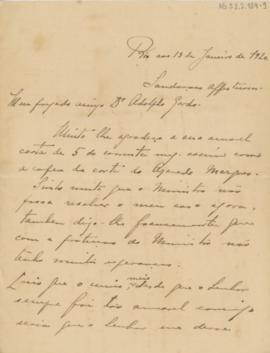 Rio aos 13 de Janeiro de 1920
Saudações affectuosas
Meu prezado amigo Dr. Adolpho Gordo.
Muito lhe agradeço a sua amavel
carta de 5 do corrente mez assim como
a copia da carta do Azevedo Marques.
Sinto muito que o Ministro não
possa resolver o meu caso agora,
tambem digo-lhe francamente que
com a do Ministro não
tenho muita esperança.
que o meio mais de que o Senhor
sempre foi tão amavel commigo
seria que o Senhor me desse